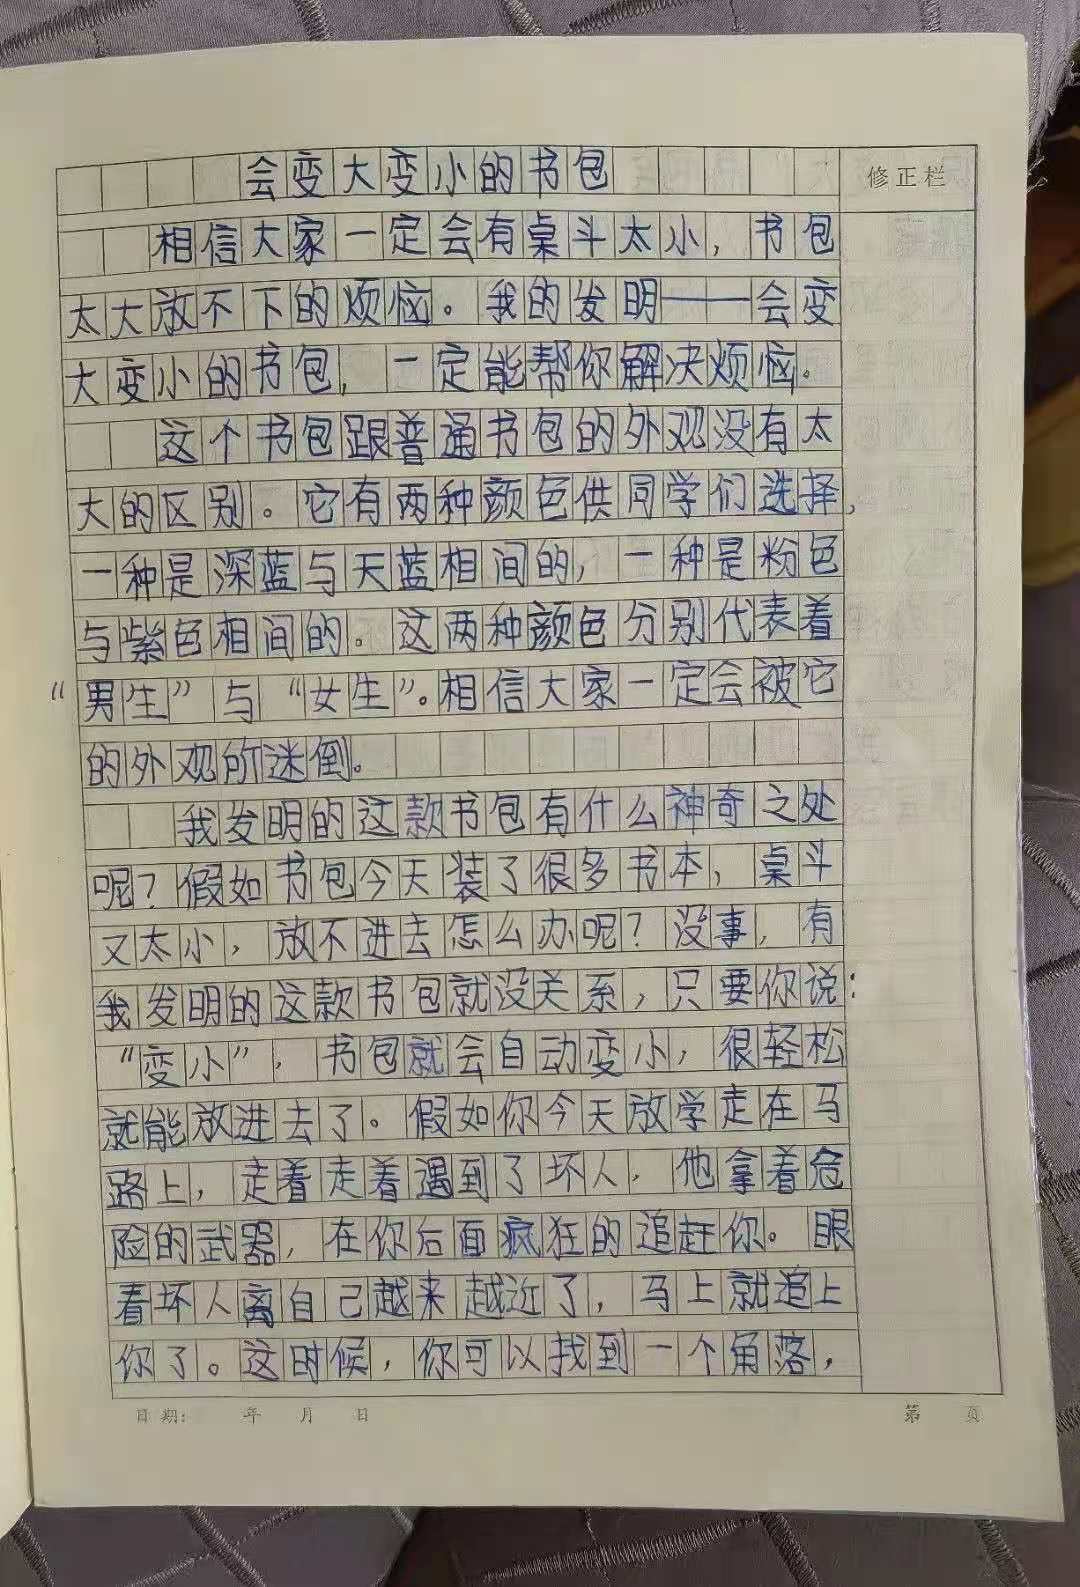 会变大变小的书包
修正栏
相信大家一定会有桌斗太小，书包
太大放不下的烦恼。我的发明——会变
大变小的书包，一定能帮你解决烦恼。
这个书包跟普通书包的外观没有太
大的区别。它有两种颜色供同学们选择，
一种是深蓝与天蓝相间的，一种是粉色
与紫色相间的。这两种颜色分别代表着
“男生”与“女生”。相信大家一定会被它
的外观所迷倒。
我发明的这款书包有什么神奇之处
呢？假如书包今天装了很多书本，桌斗
又太小，放不进去怎么办呢？没事，有
我发明的这款书包就没关系，只要你说：
“变小”，书包就会自动变小，很轻松
就能放进去了。假如你今天放学走在马
路上，走着走着遇到了坏人，他拿着危
险的武器，在你后面疯狂的追赶你。眼
看坏人离自己越来越近了，马上就追上
你了。这时候，你可以找到一个角落，
日期： 年 月 日
第 页